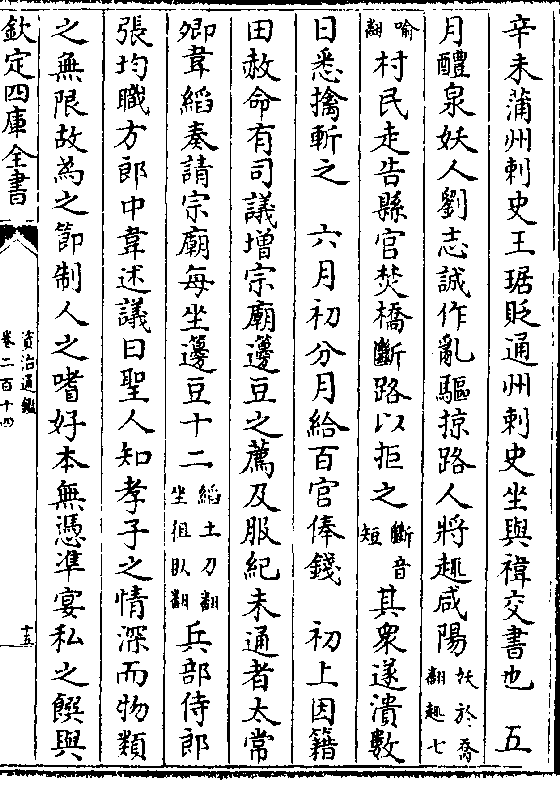 辛未蒲州刺史王琚貶通州刺史坐與禕交書也　五
月醴泉妖人劉志誠作亂驅掠路人將趣咸陽妖於喬翻趣七
喻翻村民走告縣官焚橋斷路以拒之斷音短其衆遂潰數
日悉擒斬之　六月初分月給百官俸錢　初上因籍
田赦命有司議增宗廟邊豆之薦及服紀未通者太常
卿韋縚奏請宗廟每坐邊豆十二縚土刀翻坐徂臥翻兵部侍郎
張均職方郎中韋述議曰聖人知孝子之情深而物類
之無限故為之節制人之嗜好本無憑準宴私之饌與
欽定四庫全書
資治通鑑
卷二百十四
十五